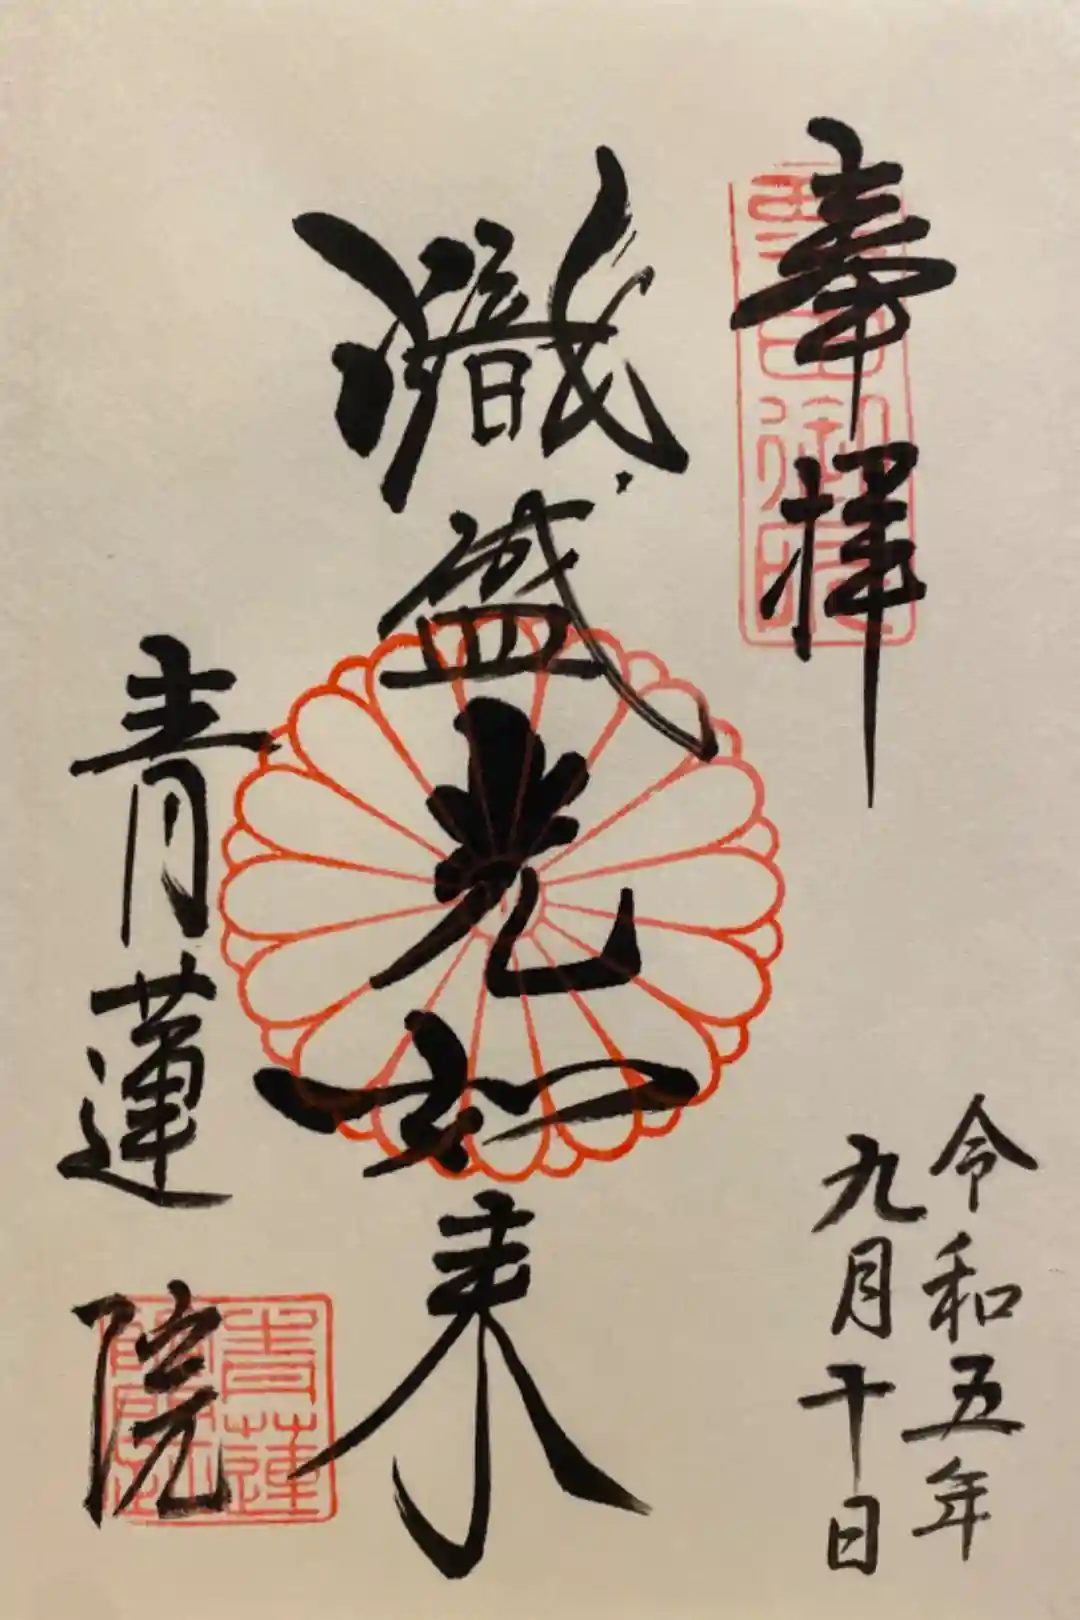 奉拝
令和五年
九月十日
熾盛光如来
青蓮院
青蓮